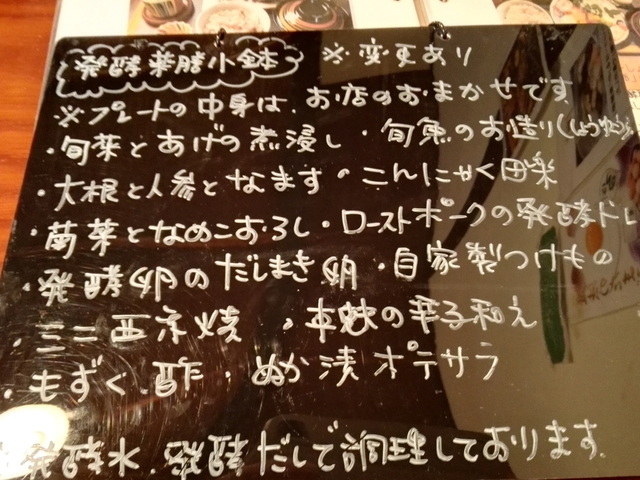 発酵薬膳小鉢 ※変更あり
※プレートの中身は、お店のおまかせです
・旬菜とあげの煮浸し・旬魚のお造り(しょうゆこうじ
・大根と人参となます・こんにゃく田楽
・菊菜となめこおろし・ローストポークの発酵ドレ
・発酵卵のだしまき卵・自家製つけもの
・ミニ西京焼 ・本鮪の辛子和え
・もずく酢・ぬか漬ポテサラ
発酵水、発酵だしで調理しております。